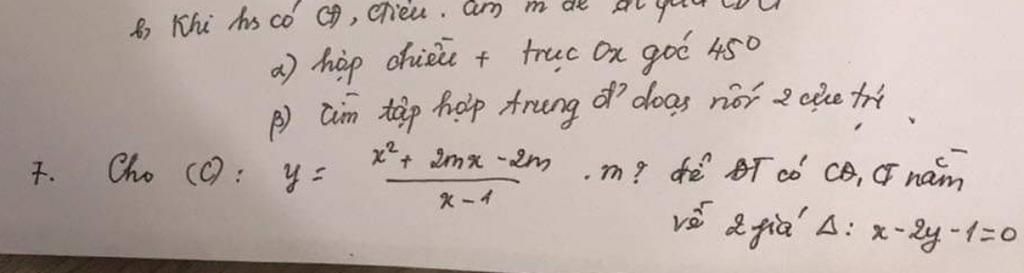 b, Khi hs có CĐ, Ctiểu. Tìm m để đt qua CĐCT
α) hợp chiều + trục Ox góc 45°
β) Tìm tập hợp trung đ' đoạn nối 2 cực trị.
7. Cho (C): y = \frac{x^2 + 2mx - 2m}{x - 1} . m? để ĐT có CĐ, CT nằm
về 2 giá Δ: x - 2y - 1 = 0